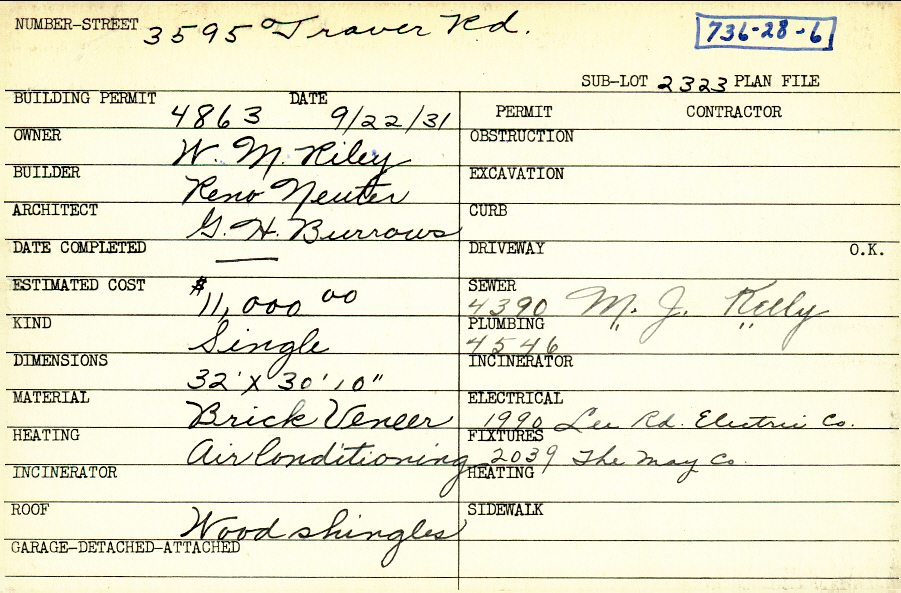 NUMBER-STREET 3595 Traver Rd.
736-28-6
SUB-LOT 2323 PLAN FILE
BUILDING PERMIT 4863 DATE 9/22/31
PERMIT CONTRACTOR
OWNER W. M. Riley
OBSTRUCTION
BUILDER Reno Neuter
EXCAVATION
ARCHITECT G. H. Burrows
CURB
DATE COMPLETED —
DRIVEWAY O.K.
ESTIMATED COST $11,000 00
SEWER 4390 M. J. Kelly
KIND Single
PLUMBING 4546 " "
DIMENSIONS 32' X 30' 10"
INCINERATOR
MATERIAL Brick Veneer
ELECTRICAL 1990 Lee Rd. Electric Co.
HEATING Air Conditioning
FIXTURES 2039 The May Co.
INCINERATOR
HEATING
ROOF Wood shingles
SIDEWALK
GARAGE-DETACHED-ATTACHED